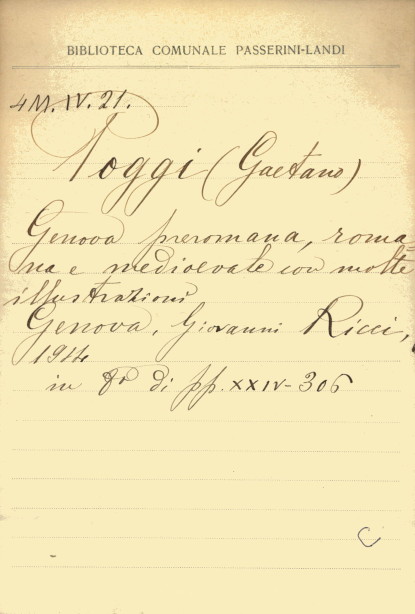 BIBLIOTECA COMUNALE PASSERINI-LANDI
4M.IV.21.
Poggi (Gaetano)
Genova preromana, roma=
na e medioevale con molte
illustrazioni
Genova, Giovanni Ricci,
1914
in 8º di pp. XXIV-306
C